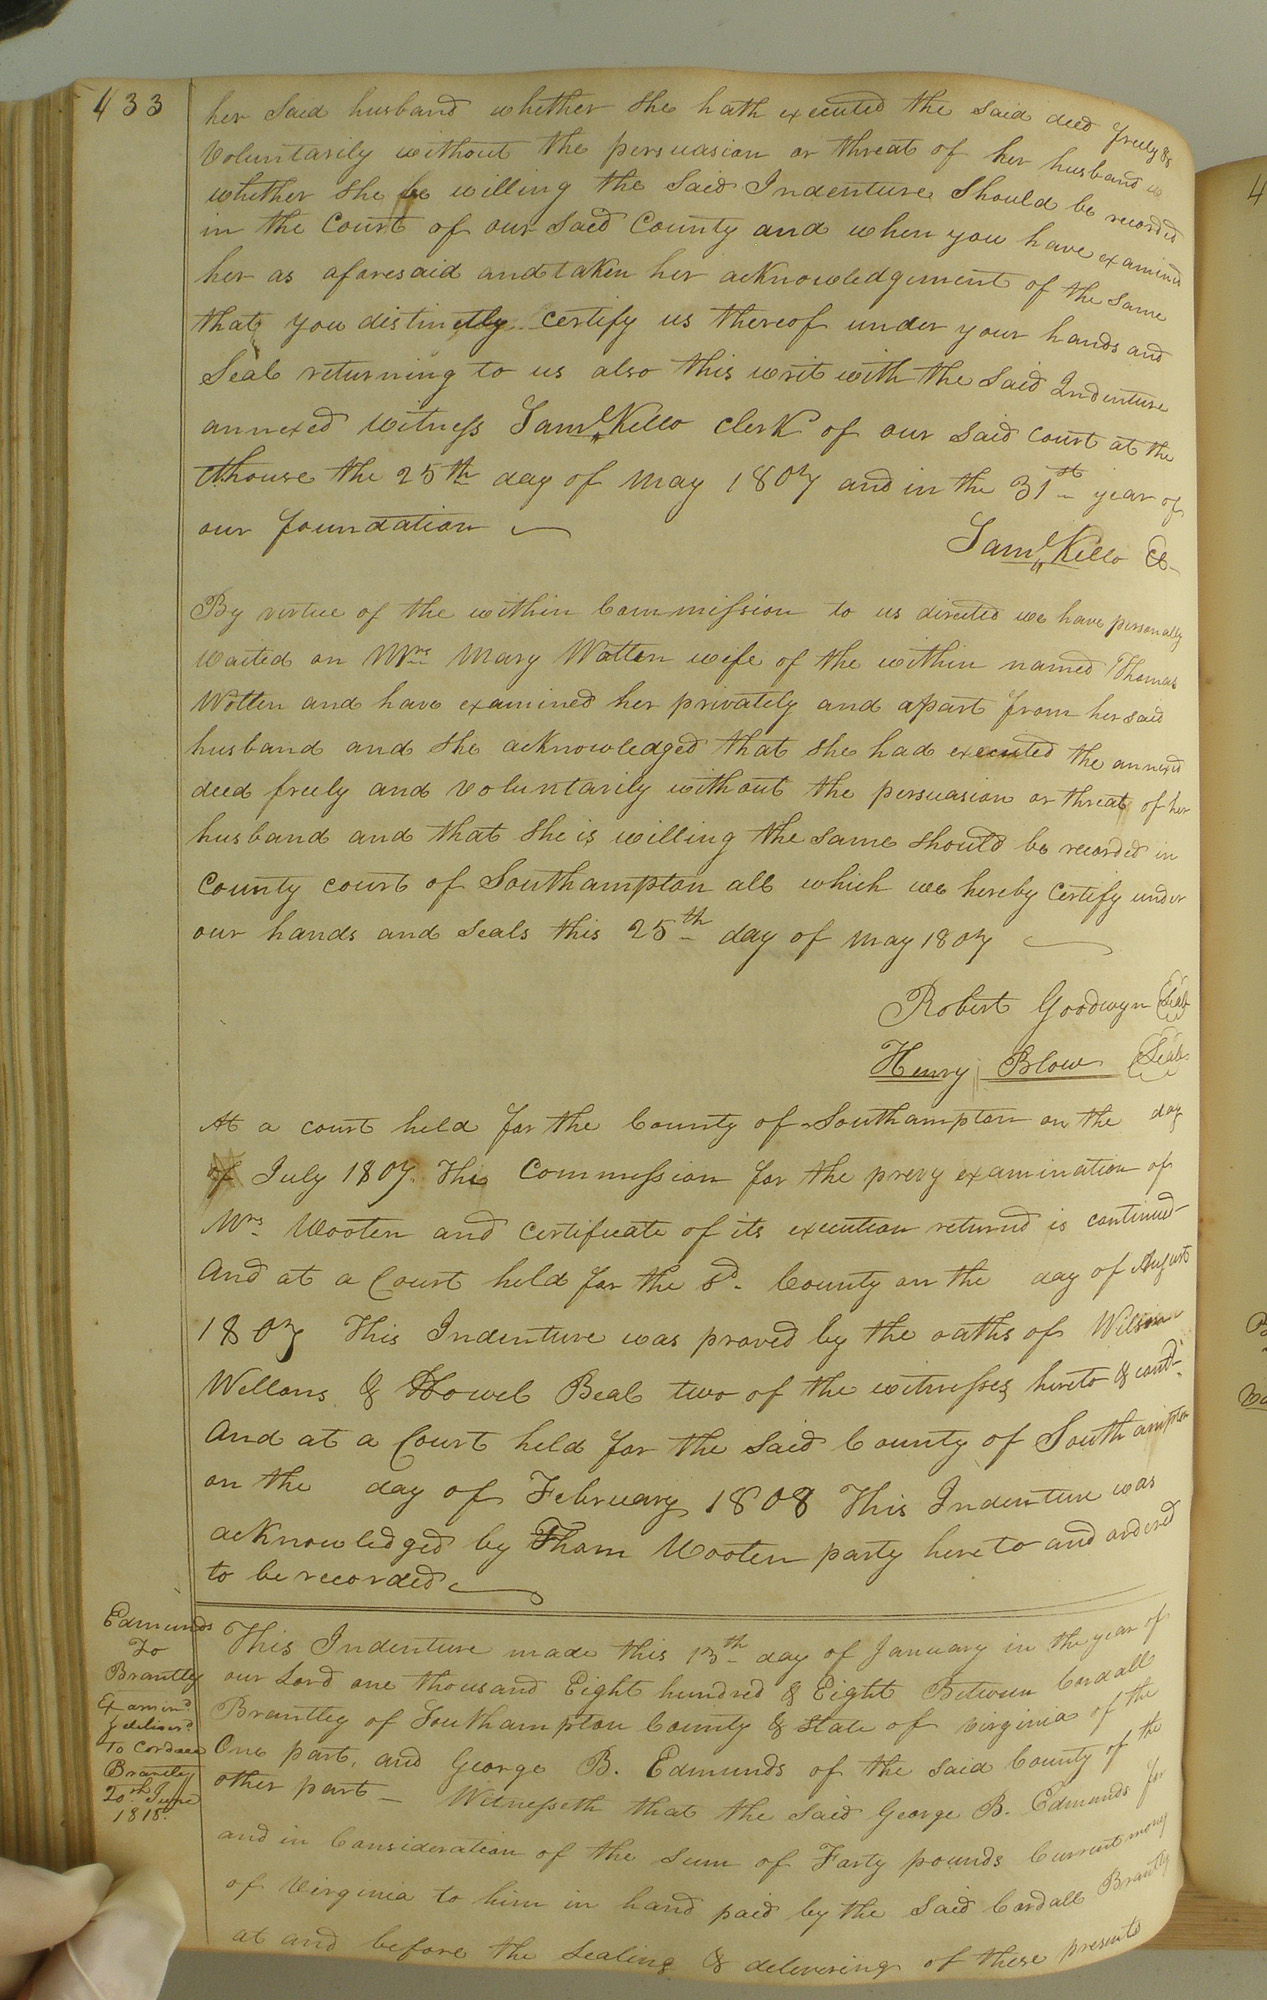 433
her said husband whether she hath executed the said deed freely &
Voluntarily without the persuasion or threat of her husband
whether she be willing the said Indenture should be recorded
in the Court of our said County and when you have examined
her as aforesaid and taken her acknowledgement of the same
that you distinctly certify us thereof under your hands and
Seal returning to us also this writ with the said Indenture
annexed Witness Saml. Kello Clerk of our said court at the
Cthouse the 25th day of may 1807 and in the 31st year of
our foundation
Saml. Kello Cl
By virtue of the within Commission to us directed we have personally
waited on Mrs Mary Wotten wife of the within named Thomas
Wotten and have examined her privately and apart from her said
husband and she acknowledged that she had executed the annexed
deed freely and voluntarily without the persuasion or threat of her
husband and that she is willing the same should be recorded in
County court of Southampton all which we hereby certify under
our hands and seals this 25th day of may 1807
Robert Goodwyn (Seal
Henry Blow (Seal
At a court held for the County of Southampton on the day
of July 1807. This Commission for the prevy examination of
Mrs. Wooten and Certificate of its execution returnd is continued
And at a Court held for the sd. County on the day of August
1807 This Indenture was proved by the oaths of Wilson
Wellons & Howel Beal two of the witnesses hereto & contd.
And at a Court held for the said County of Southampton
on the day of February 1808 This Indenture was
acknowledged by Thom Wooten party hereto and ordered
to be recorded
Edmunds
To
Brantley
Examind
& deliverd
To Cordall
Brantley
20th June
1815.
This Indenture made this 13th day of January in the year of
our Lord one thousand Eight hundred & Eight Between Cordall
Brantley of Southampton County & State of Virginia of the
One part, and George B. Edmunds of the said County of the
other part — Witnesseth that the said George B. Edmunds for
and in Consideration of the sum of Forty pounds Current money
of Virginia to him in hand paid by the said Cordall Brantley
at and before the sealing & delivering of these presents